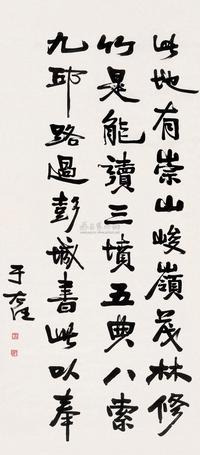 此地有崇山峻嶺茂林修
竹是能讀三墳五典八索
九邱路過彭城書此以奉
于右任